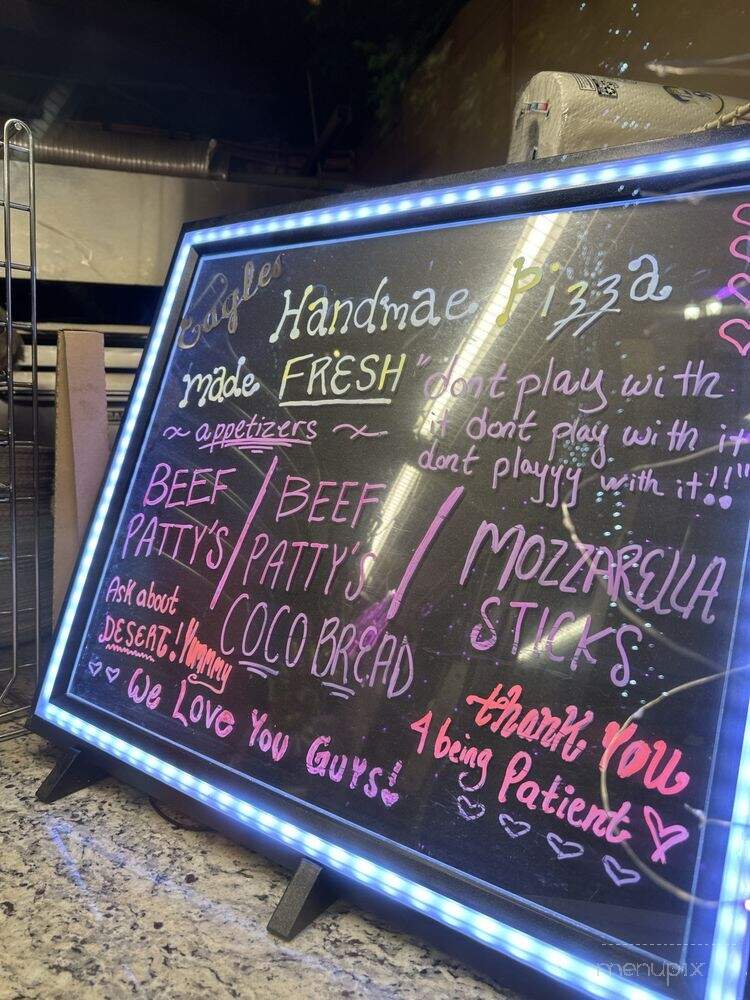 Eagles
Handmae Pizza
made FRESH
"dont play with
it dont play with it
dont playyy with it!!"
~ appetizers ~
BEEF
PATTY'S
/
BEEF
PATTY'S
COCO BREAD
/
MOZZARELLA
STICKS
Ask about
DESERT! Yummy
We Love You Guys!
thank You
4 being Patient
menupix